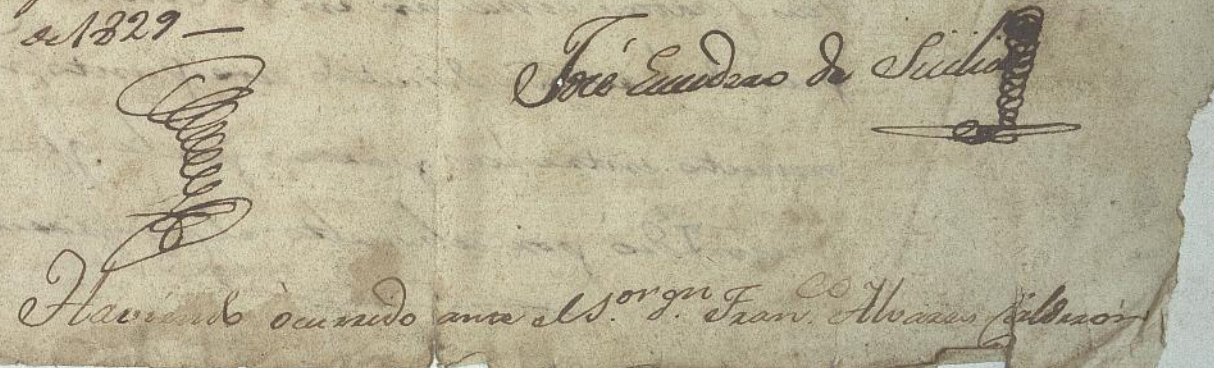 de 1829 —
José Eusedrao de Sicilia
Haviendo ocurrido ante el S.or Dn. Fran.co Alvares Calderón